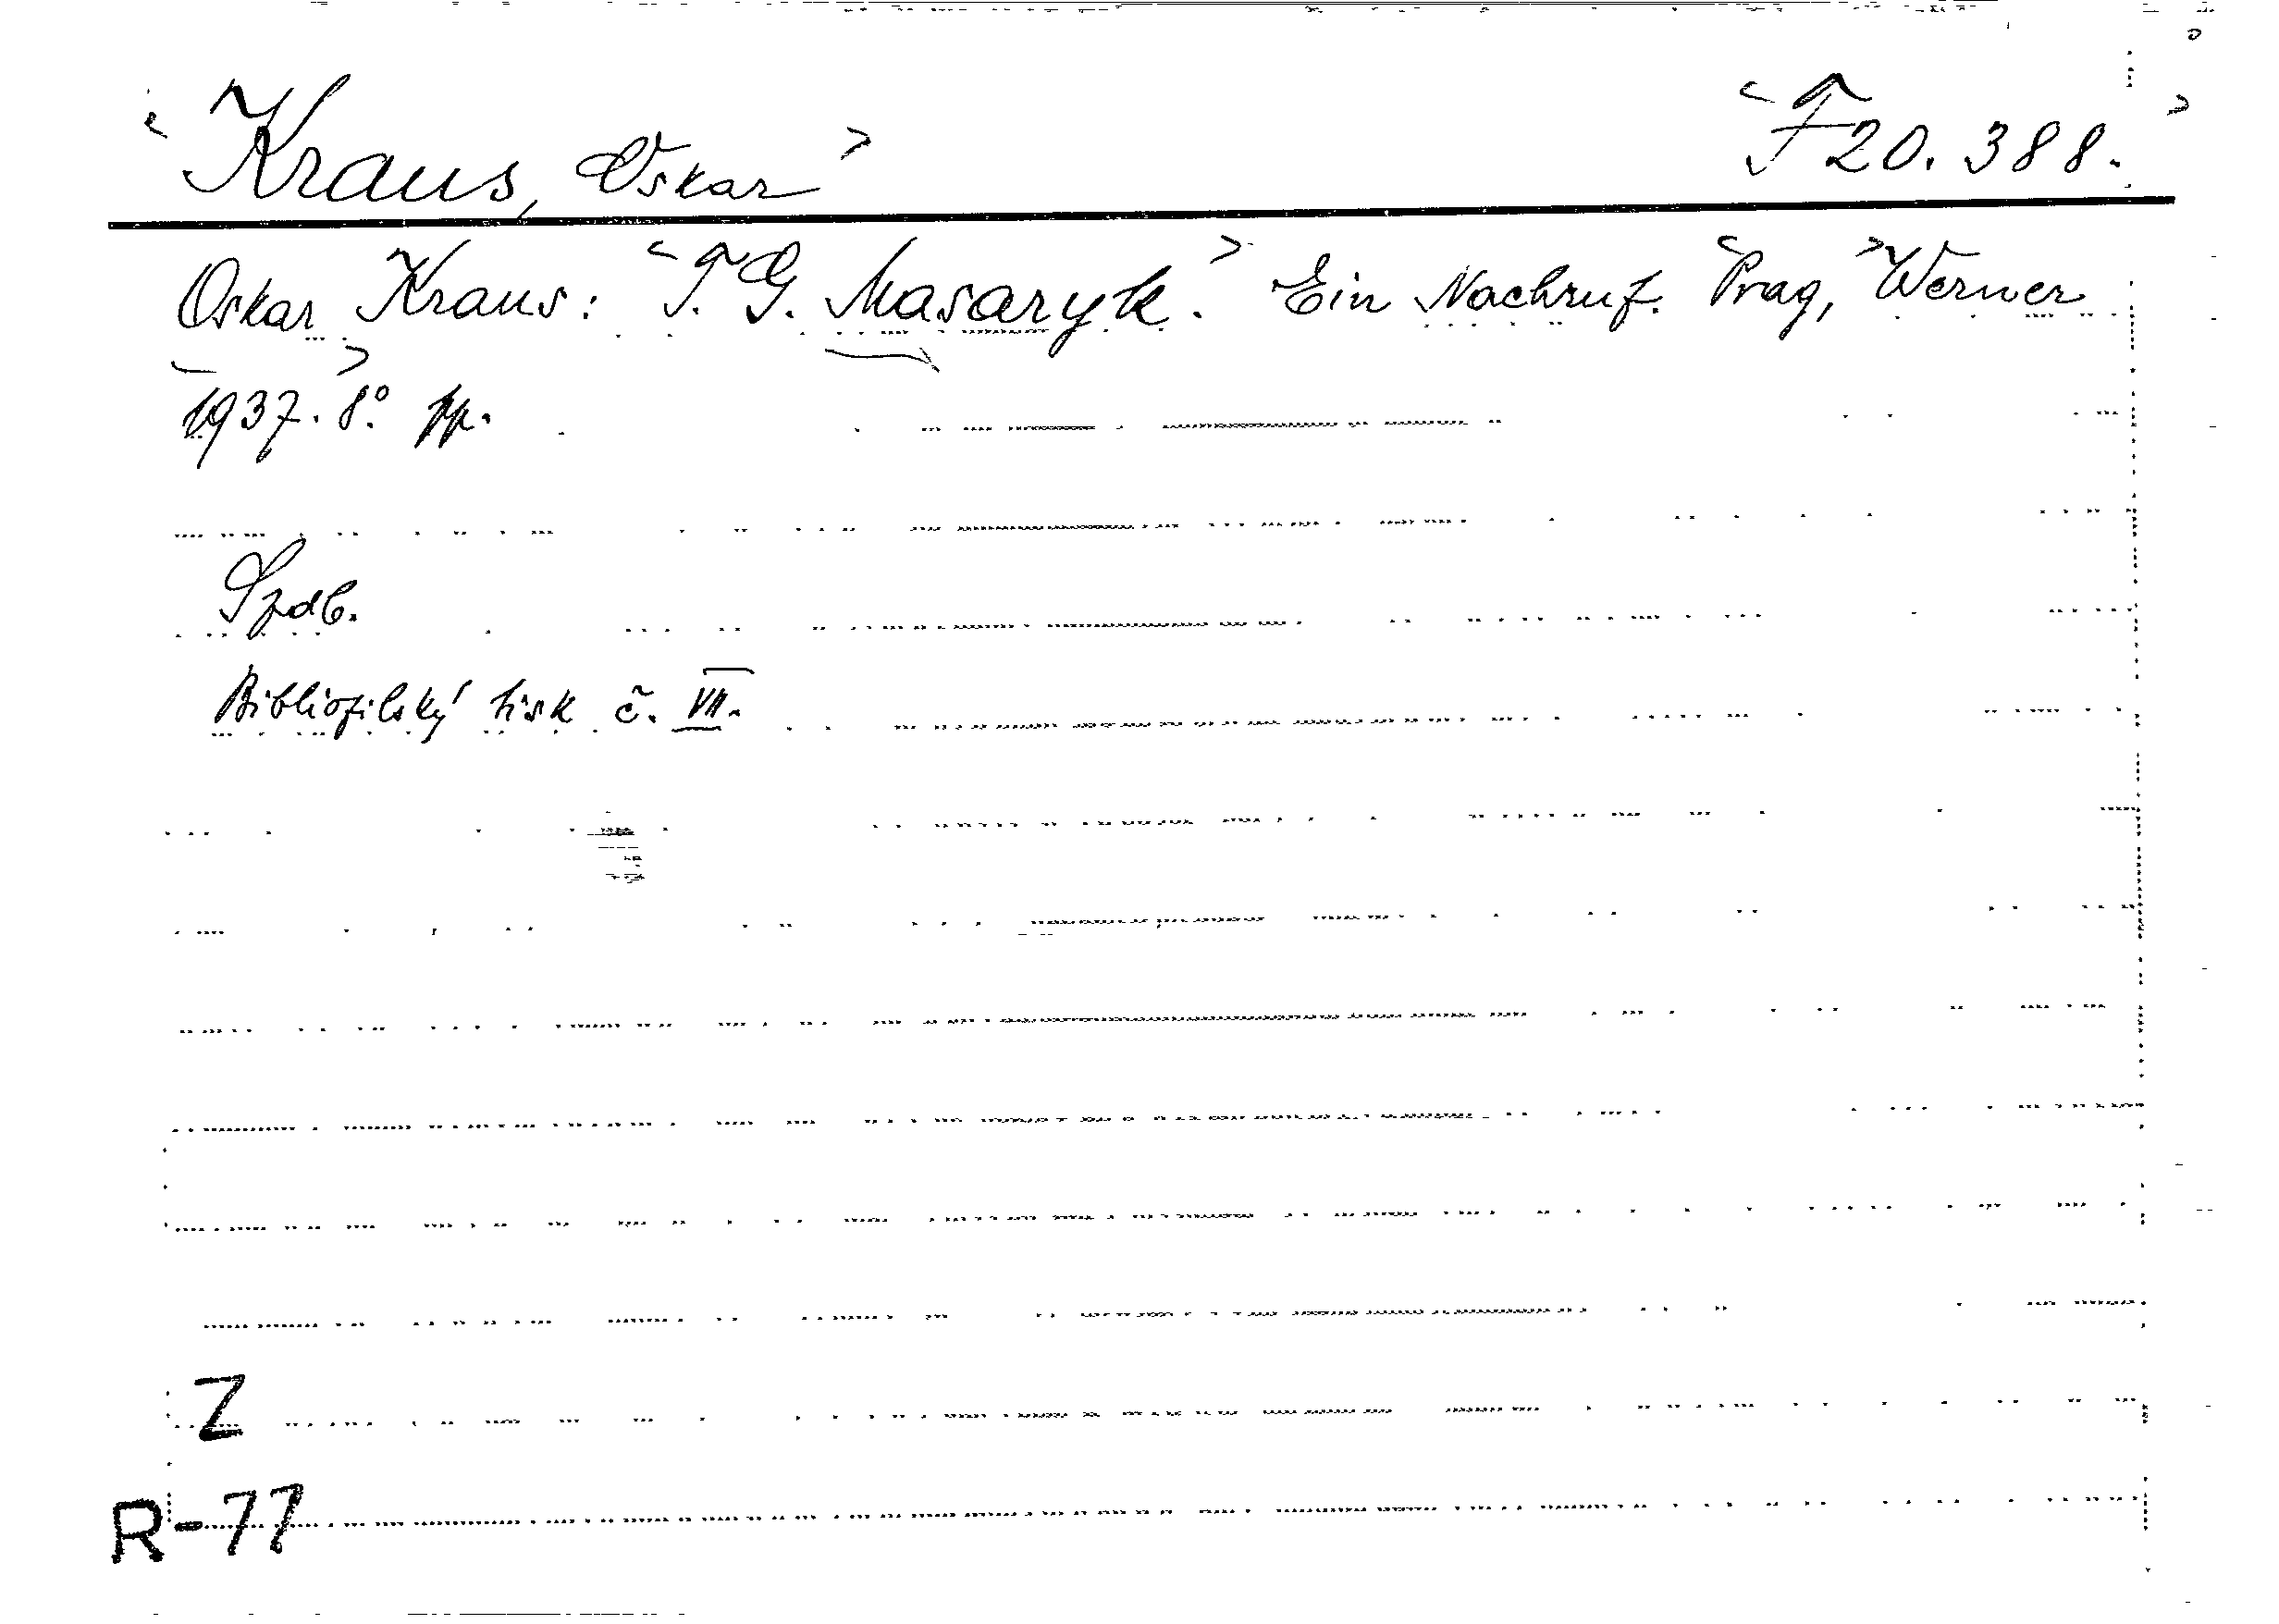 < Kraus, Oskar > < F 20.388. >
Oskar Kraus: < T. G. Masaryk. > Ein Nachruf. < Prag, > Werner
< 1937. > 8°. pp.
Bibliofilský tisk č. VII.
Z
R-77